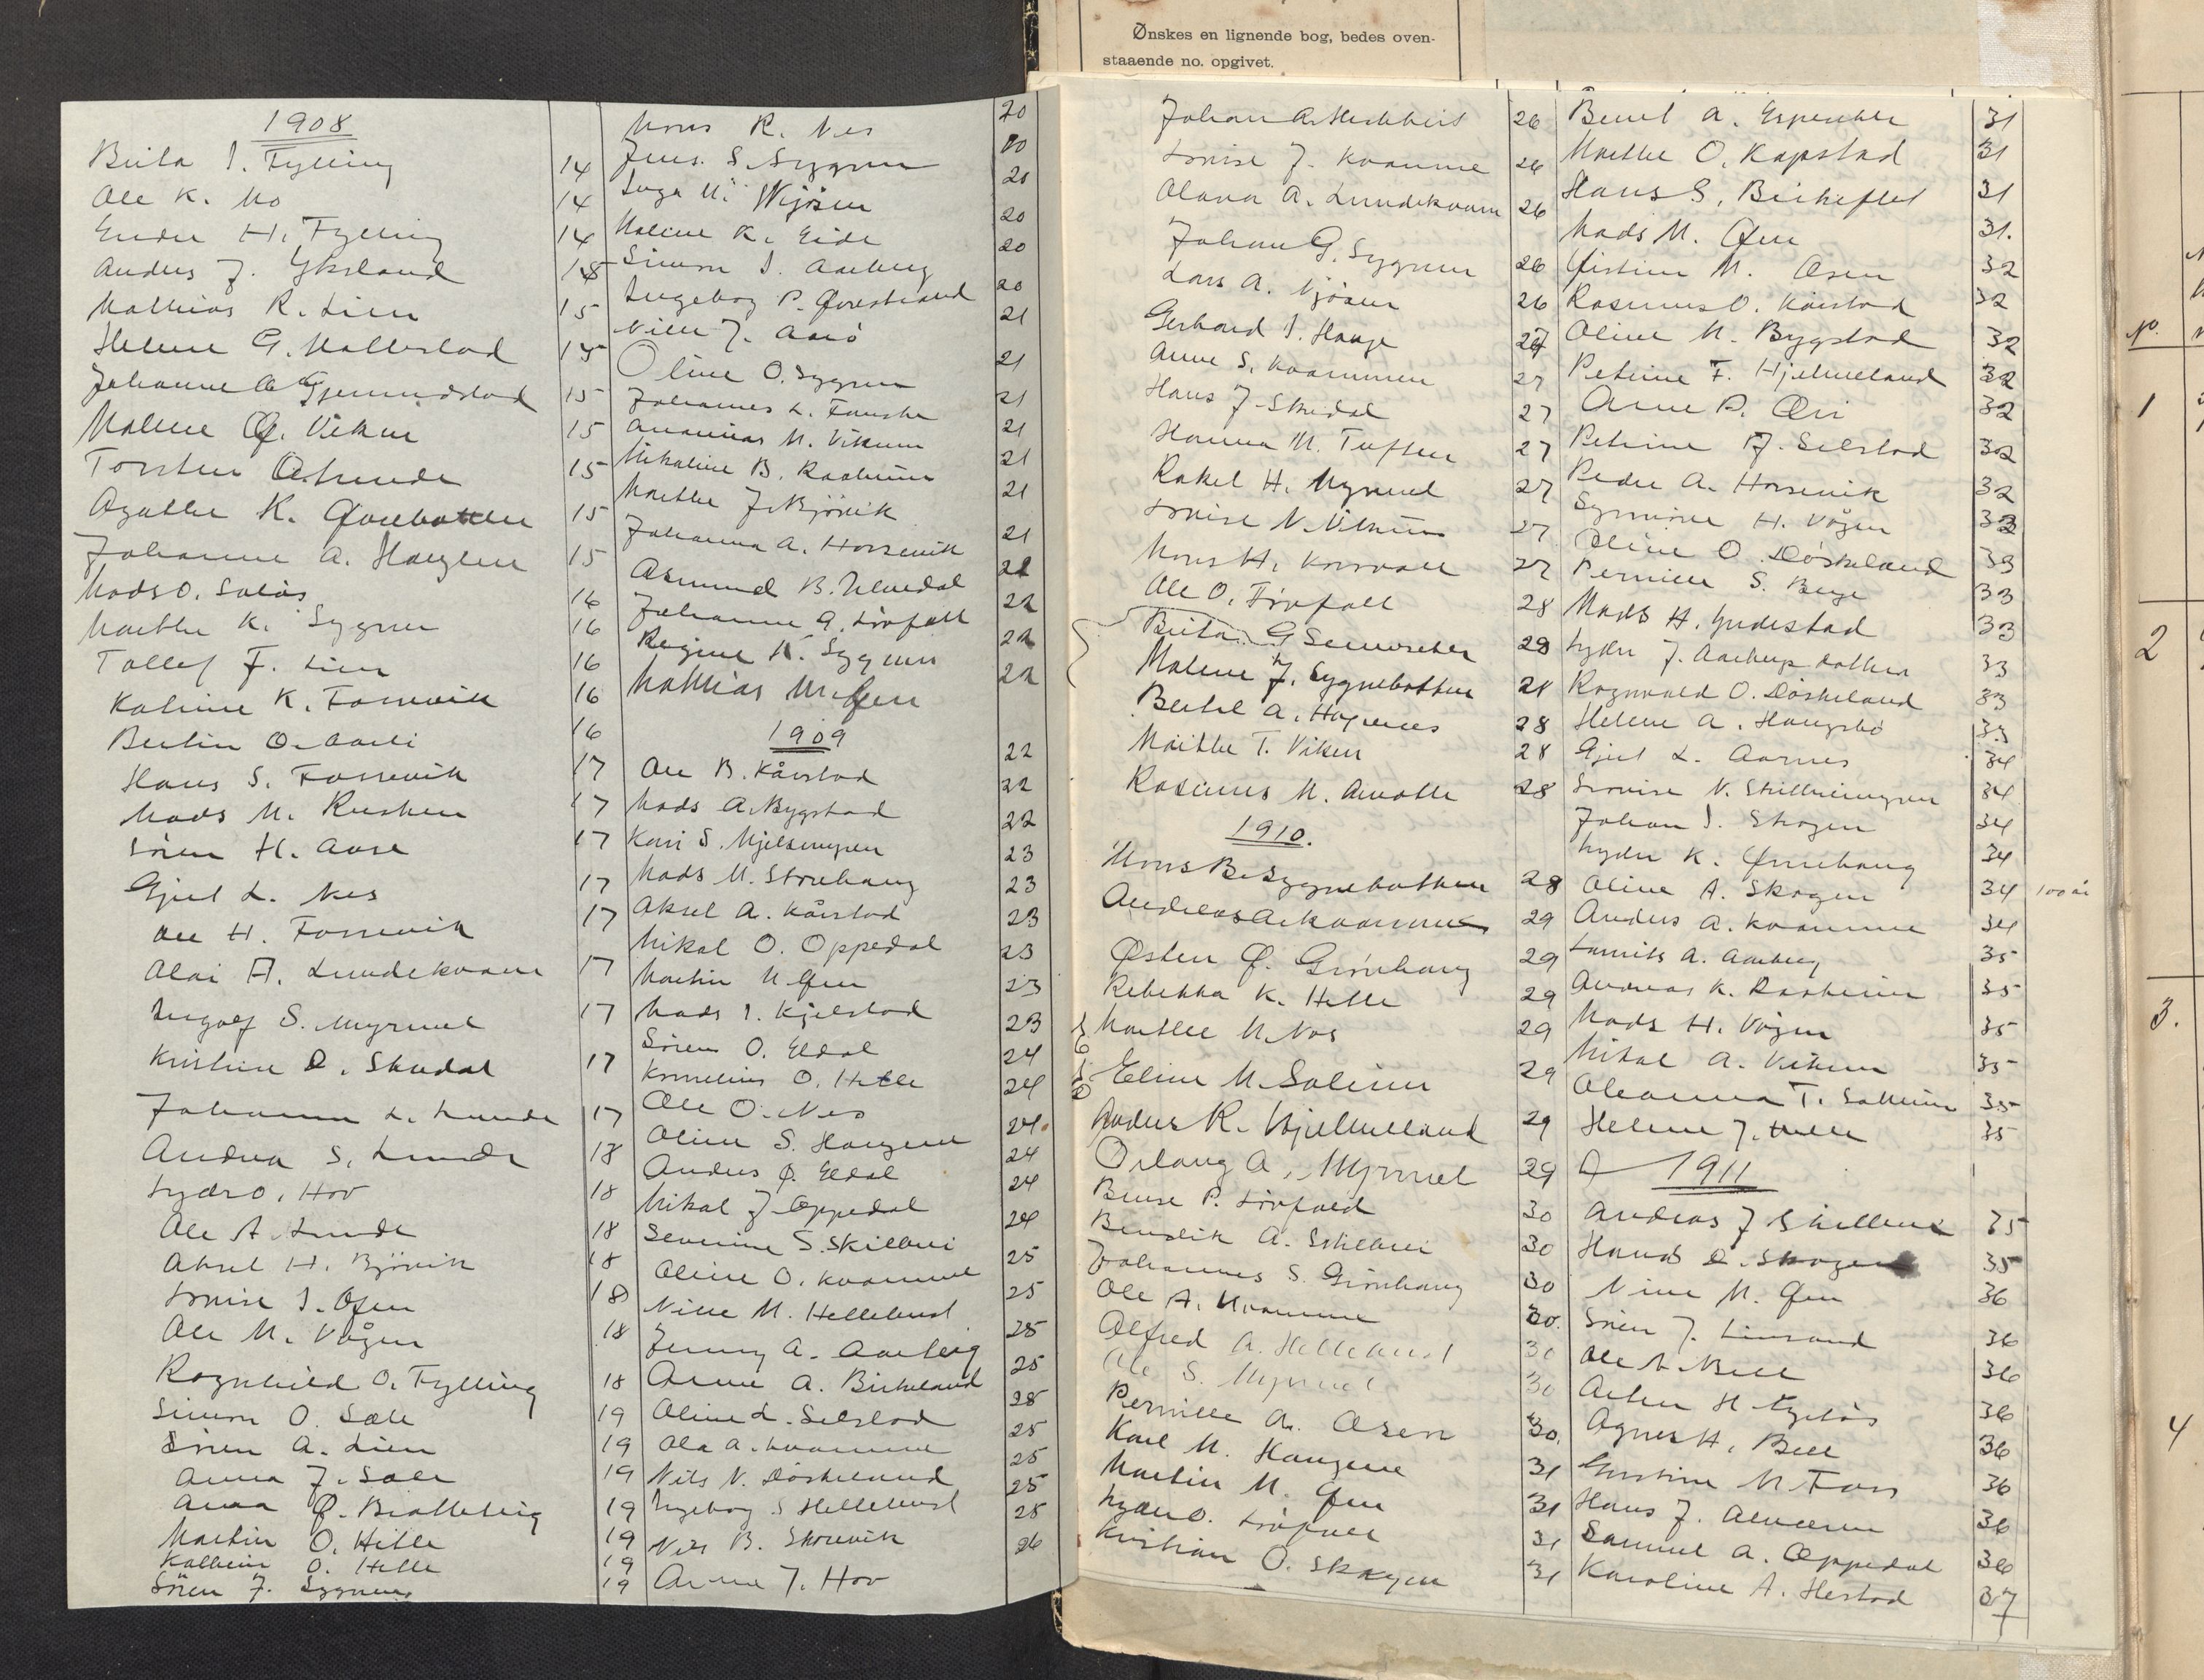 Ønskes en lignende bog, bedes oven-
staaende no. opgivet.
1908
Berta I. Fylling 14
Ole K. Mo 14
Endre H. Fylling 14
Anders J. Yksland 15
Mathias R. Lien 15
Helene G. Mallestad 15
Johanne A. Gjemmestad 15
Malene Ø. Viken 15
Torsten O. Lunde 15
Agathe K. Øvrebotten 15
Johanne A. Haugen 15
Mads O. Solås 16
Marthe K. Sygna 16
Tollef F. Lien 16
Katrine K. Fossevik 16
Bertin O. Aarli 16
Hans S. Fossevik 17
Mads M. 17
Sören H. Aase 17
Gjert L. Nes 17
Ole H. Fossevik 17
Olai A. Lundekvam 17
Ingolf S. Myrmel 17
Kristine D. Skudal 17
Johanna L. Lunde 17
Andrea S. Lunde 18
Lyder O. Hov 18
Ole A. Lunde 18
Aksel H. Bjövik 18
Lovise I. Øen 18
Ole M. Vågen 18
Ragnhild O. Fylling 18
Simon O. Sæle 19
Sören A. Lien 19
Anna J. Sæle 19
Anna Ø. Brattelig 19
Martin O. Helle 19
Kathrine O. Helle 19
Sören J. Sygna 19
Mons R. Nes 20
Jens S. Sygna 20
Inga M. Mjösen 20
Malene K. Eide 20
Simon I. Aaberg 20
Ingeborg P. Øvrestrand 20
Nille J. Aasö 21
Oline O. Sygna 21
Johannes L. Fauske 21
Ananias M. Vikum 21
Mikaline B. Raaheim 21
Marthe J. Bjövik 21
Johanna A. Horsevik 21
Asmund B. 21
Johanne A. Lövfall 22
Regine K. Sygna 22
Mathias M. Øen 22
1909
Ole B. Kårstad 22
Mads A. Bygstad 22
Kari S. Mjelsmyren 22
Mads M. Storehaug 23
Aksel A. Kårstad 23
Mikal O. Oppedal 23
Martin M. Øen 23
Mads I. Kjelstad 23
Sören O. Eldal 23
Kornelius O. Helle 24
Ole O. Nes 24
Oline S. Haugene 24
Anders Ø. Eldal 24
Mikal J. Oppedal 24
Severine S. Skilbrei 24
Oline O. Kvamme 25
Nille M. Hellebust 25
Jenny A. Aaberg 25
Anne A. Birkeland 25
Oline L. Selstad 25
Ola A. Kvamme 25
Nils N. Döskeland 25
Ingeborg S. Hellebust 25
Nils B. Skorevik 25
Anne J. Hov 26
Johan A. 26
Lovise J. Kvamme 26
Olava A. Lundekvam 26
Johan G. Sygna 26
Lars A. Mjösen 26
Gerhard I. Hauge 27
Anne S. Kvammen 27
Hans J. Skudal 27
Hanna M. Tuften 27
Rakel H. Myrmel 27
Lovise N. Vikum 27
Mons H. Korsvoll 27
Ole O. Lövfall 28
Berta G. 28
Malene J. Sygnebotten 28
Bertel A. Hagenes 28
Marthe T. Viken 28
Rasmus M. 28
1910.
Mons B. Sygnebotten 28
Andreas A. Kvamme 29
Østen Ø. Grönhaug 29
Rebekka K. Helle 29
Marthe M. Nos 29
Eline M. Solheim 29
Anders K. Hjelmeland 29
Orlaug A. Myrmel 29
Brusе P. Lövfald 30
Bendik A. Skilbrei 30
Johannes S. Grönhaug 30
Ole A. Kvamme 30.
Alfred A. Hellebust 30
Ole S. Myrmel 30
Pernille A. Osen 30.
Karl M. Haugene 31
Martin M. Øen 31
Lyder O. Lövfall 31
Kristian O. Skogen 31
Berit A. Espeseter 31
Marthe O. Kapstad 31
Hans S. Birkeflet 31
Mads M. Øen 31.
Kristine M. Osen 32
Rasmus O. Kårstad 32
Oline M. Bygstad 32
Petrine F. Hjelmeland 32
Arne P. Øri 32
Petrine A. Selstad 32
Peder A. Horsevik 32
Synnöve H. Vågen 33
Oline O. Döskeland 33
Pernille S. Berge 33
Mads H. Yndestad 33
Lyder J. 33
Ragnvald O. Döskeland 33
Helene A. Haugsbö 33
Gjert L. Aarnes 34
Lovise N. 34
Johan I. Skogen 34
Lyder K. Grönehaug 34
Oline A. Skogen 34 100 år
Anders A. Kvamme 34
Laurits A. Aaberg 35
Andreas K. Raaheim 35
Mads H. Vågen 35
Mikal A. Vikum 35
Oleanna T. Solheim 35
Helene J. Helle 35
1911
Andreas J. 35
Hans D. Skogen 35
Nille M. Øen 36
Sören J. Linsand 36
Ole A. Bell 36
36
Agnes H. Bell 36
Kristine M. Foss 36
Hans J. 36
Samuel A. Oppedal 36
Karoline A. Hestad 37
No.
1
2
3.
4